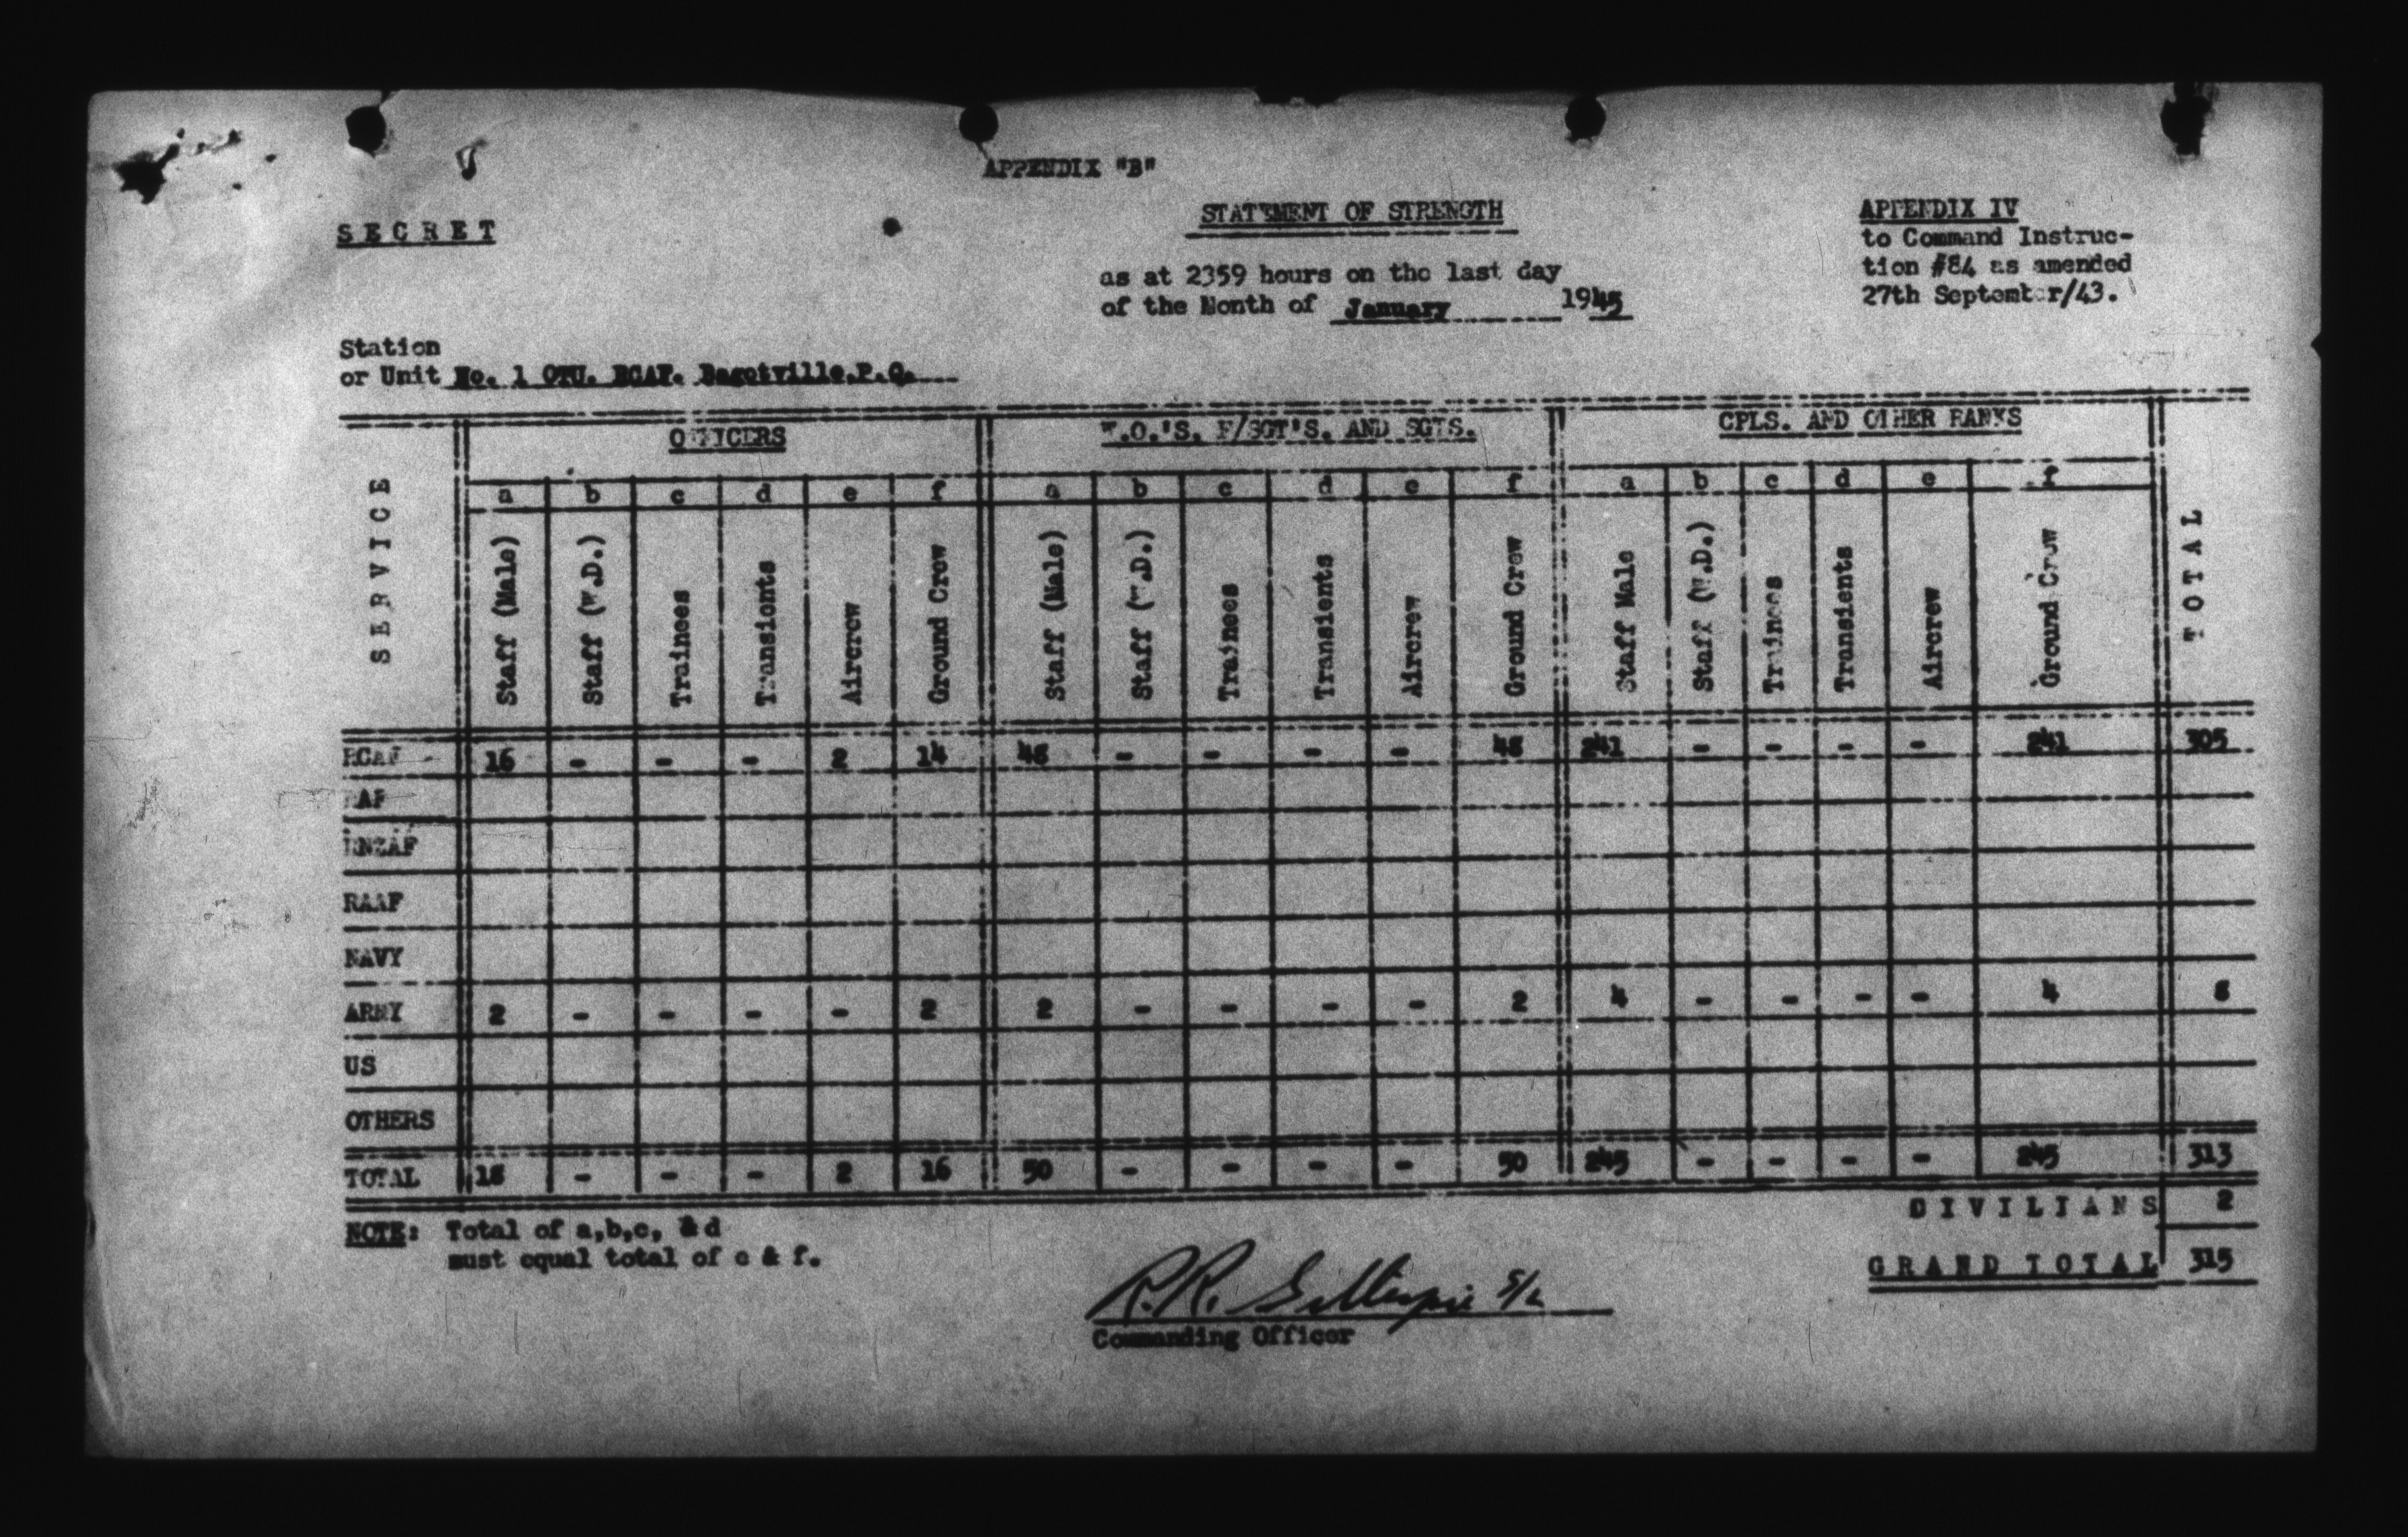 APPENDIX "B"
SECRET
STATEMENT OF STRENGTH
as at 2359 hours on the last day
of the Month of January 1945
APPENDIX IV
to Command Instruc-
tion #84 as amended
27th September/43.
Station
or Unit No. 1 OTU. RCAF. Bagotville.P.Q.
SERVICE
OFFICERS
W.O.'S. F/SGT'S. AND SGTS.
CPLS. AND OTHER RANKS
TOTAL
a b c d e f a b c d e f a b c d e f
Staff (Male) Staff (W.D.) Trainees Transients Aircrew Ground Crew Staff (Male) Staff (W.D.) Trainees Transients Aircrew Ground Crew Staff Male Staff (W.D.) Trainees Transients Aircrew Ground Crew
RCAF 16 - - - 2 14 48 - - - - 48 241 - - - - 241 305
RAF
RNZAF
RAAF
NAVY
ARMY 2 - - - - 2 2 - - - - 2 4 - - - - 4 8
US
OTHERS
TOTAL 18 - - - 2 16 50 - - - - 50 245 - - - - 245 313
CIVILIANS 2
GRAND TOTAL 315
NOTE: Total of a,b,c, & d
must equal total of e & f.
R.R. Gillespie S/L
Commanding Officer